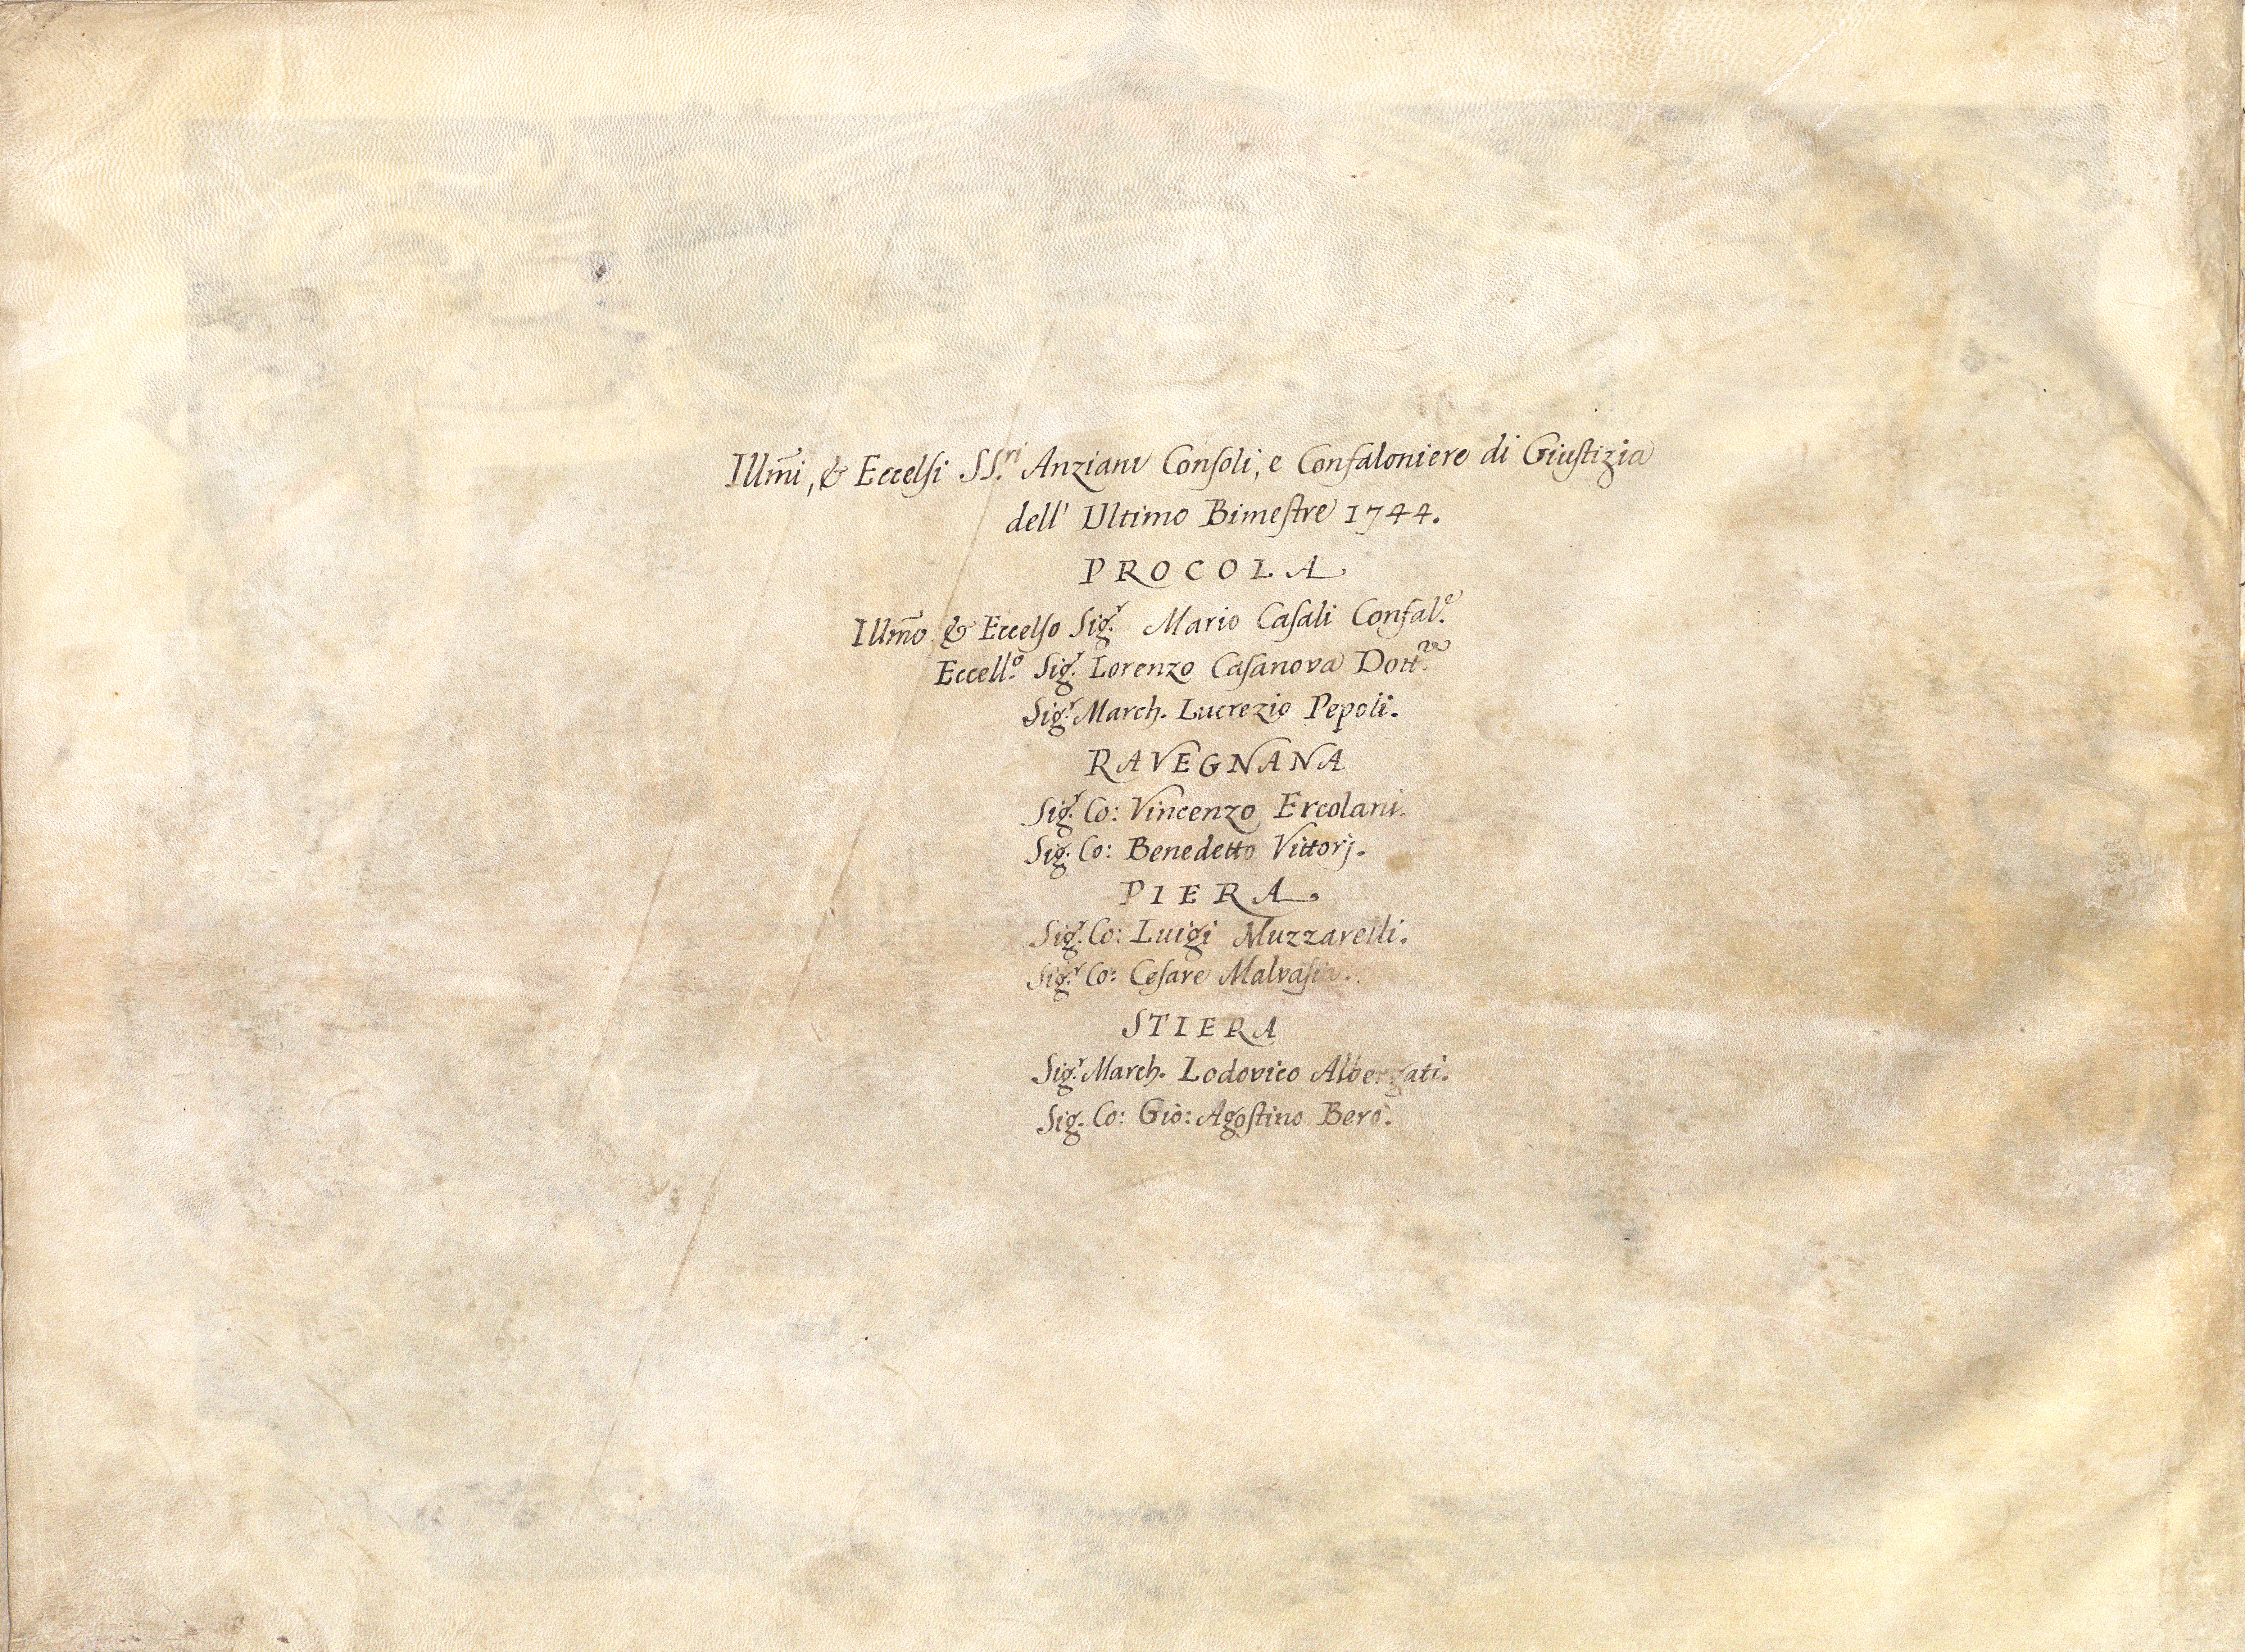 Illm̃i, & Eccelsi SS.ri Anziani Consoli, e Confaloniere di Giustizia
dell' Ultimo Bimestre 1744.
PROCOLA
Illm̃o & Eccelso Sig.r Mario Casali Confal.e
Eccell.o Sig.r Lorenzo Casanova Dott.re
Sig.r March. Lucrezio Pepoli.
RAVEGNANA
Sig.r Co: Vincenzo Ercolani.
Sig. Co: Benedetto Vittorj.
PIERA
Sig.r Co: Luigi Muzzarelli.
Sig.r Co: Cesare Malvasia.
STIERA
Sig.r March. Lodovico Albergati.
Sig. Co: Gio: Agostino Berò.